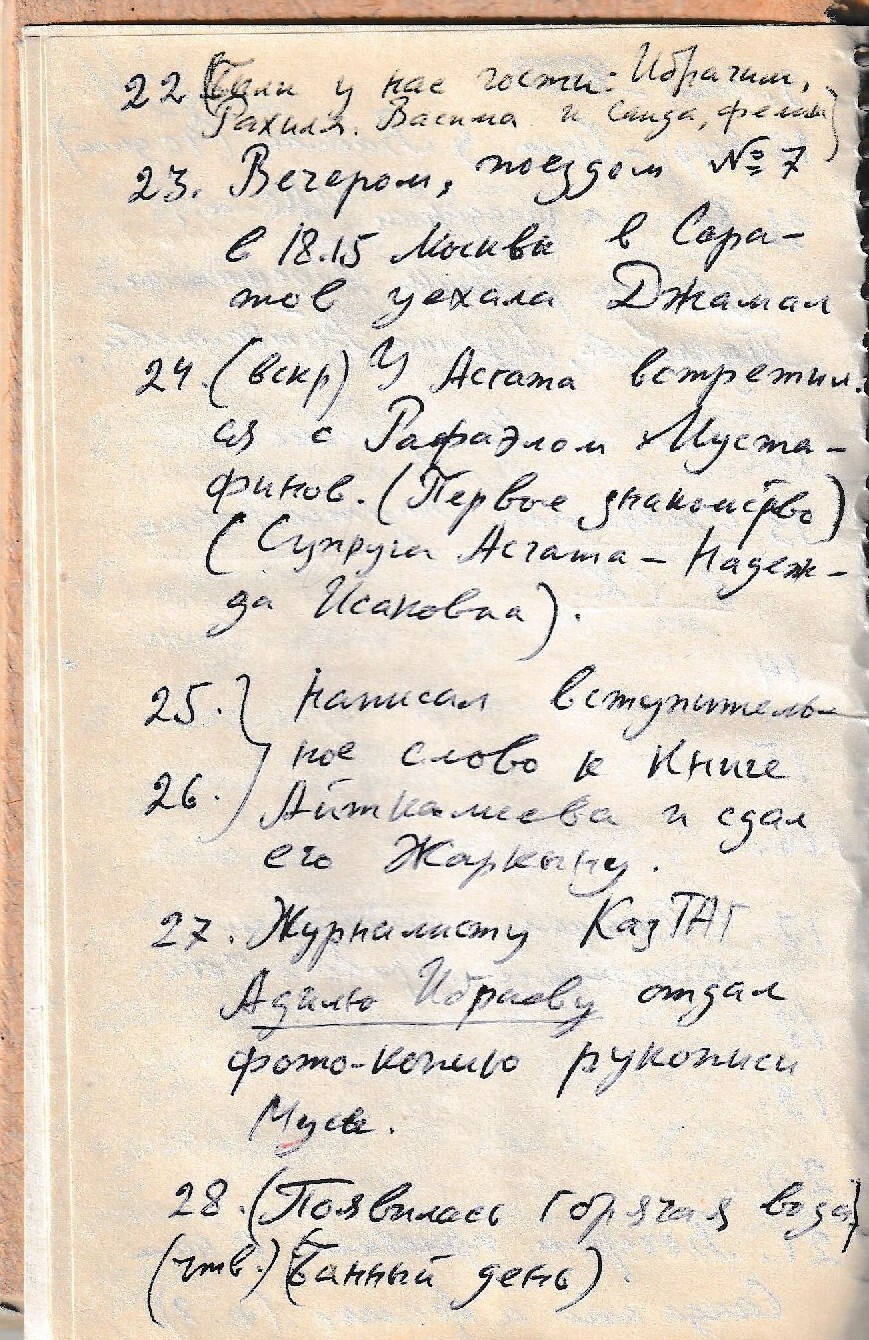 22 (Были у нас гости: Ибрагим,
Рахиля. Васима и Саида,
23. Вечером, поездом № 7
в 18.15 Москвы в Сара-
тов уехала Джамал
24. (вскр) У Асгата встретил.
ся с Рафаэлом Муста-
финов. (Первое знакомство)
(Супруга Асгата – Надеж-
да Исаковна).
25. } написал вступитель-
ное слово к книге
26. } Айткалиева и сдал
его Жаркыну.
27. Журналисту КазТАГ
Адилю Ибраеву отдал
фото-копию рукописи
Мусы.
28. (Появилась горячая вода)
(чтв.) (Банный день)